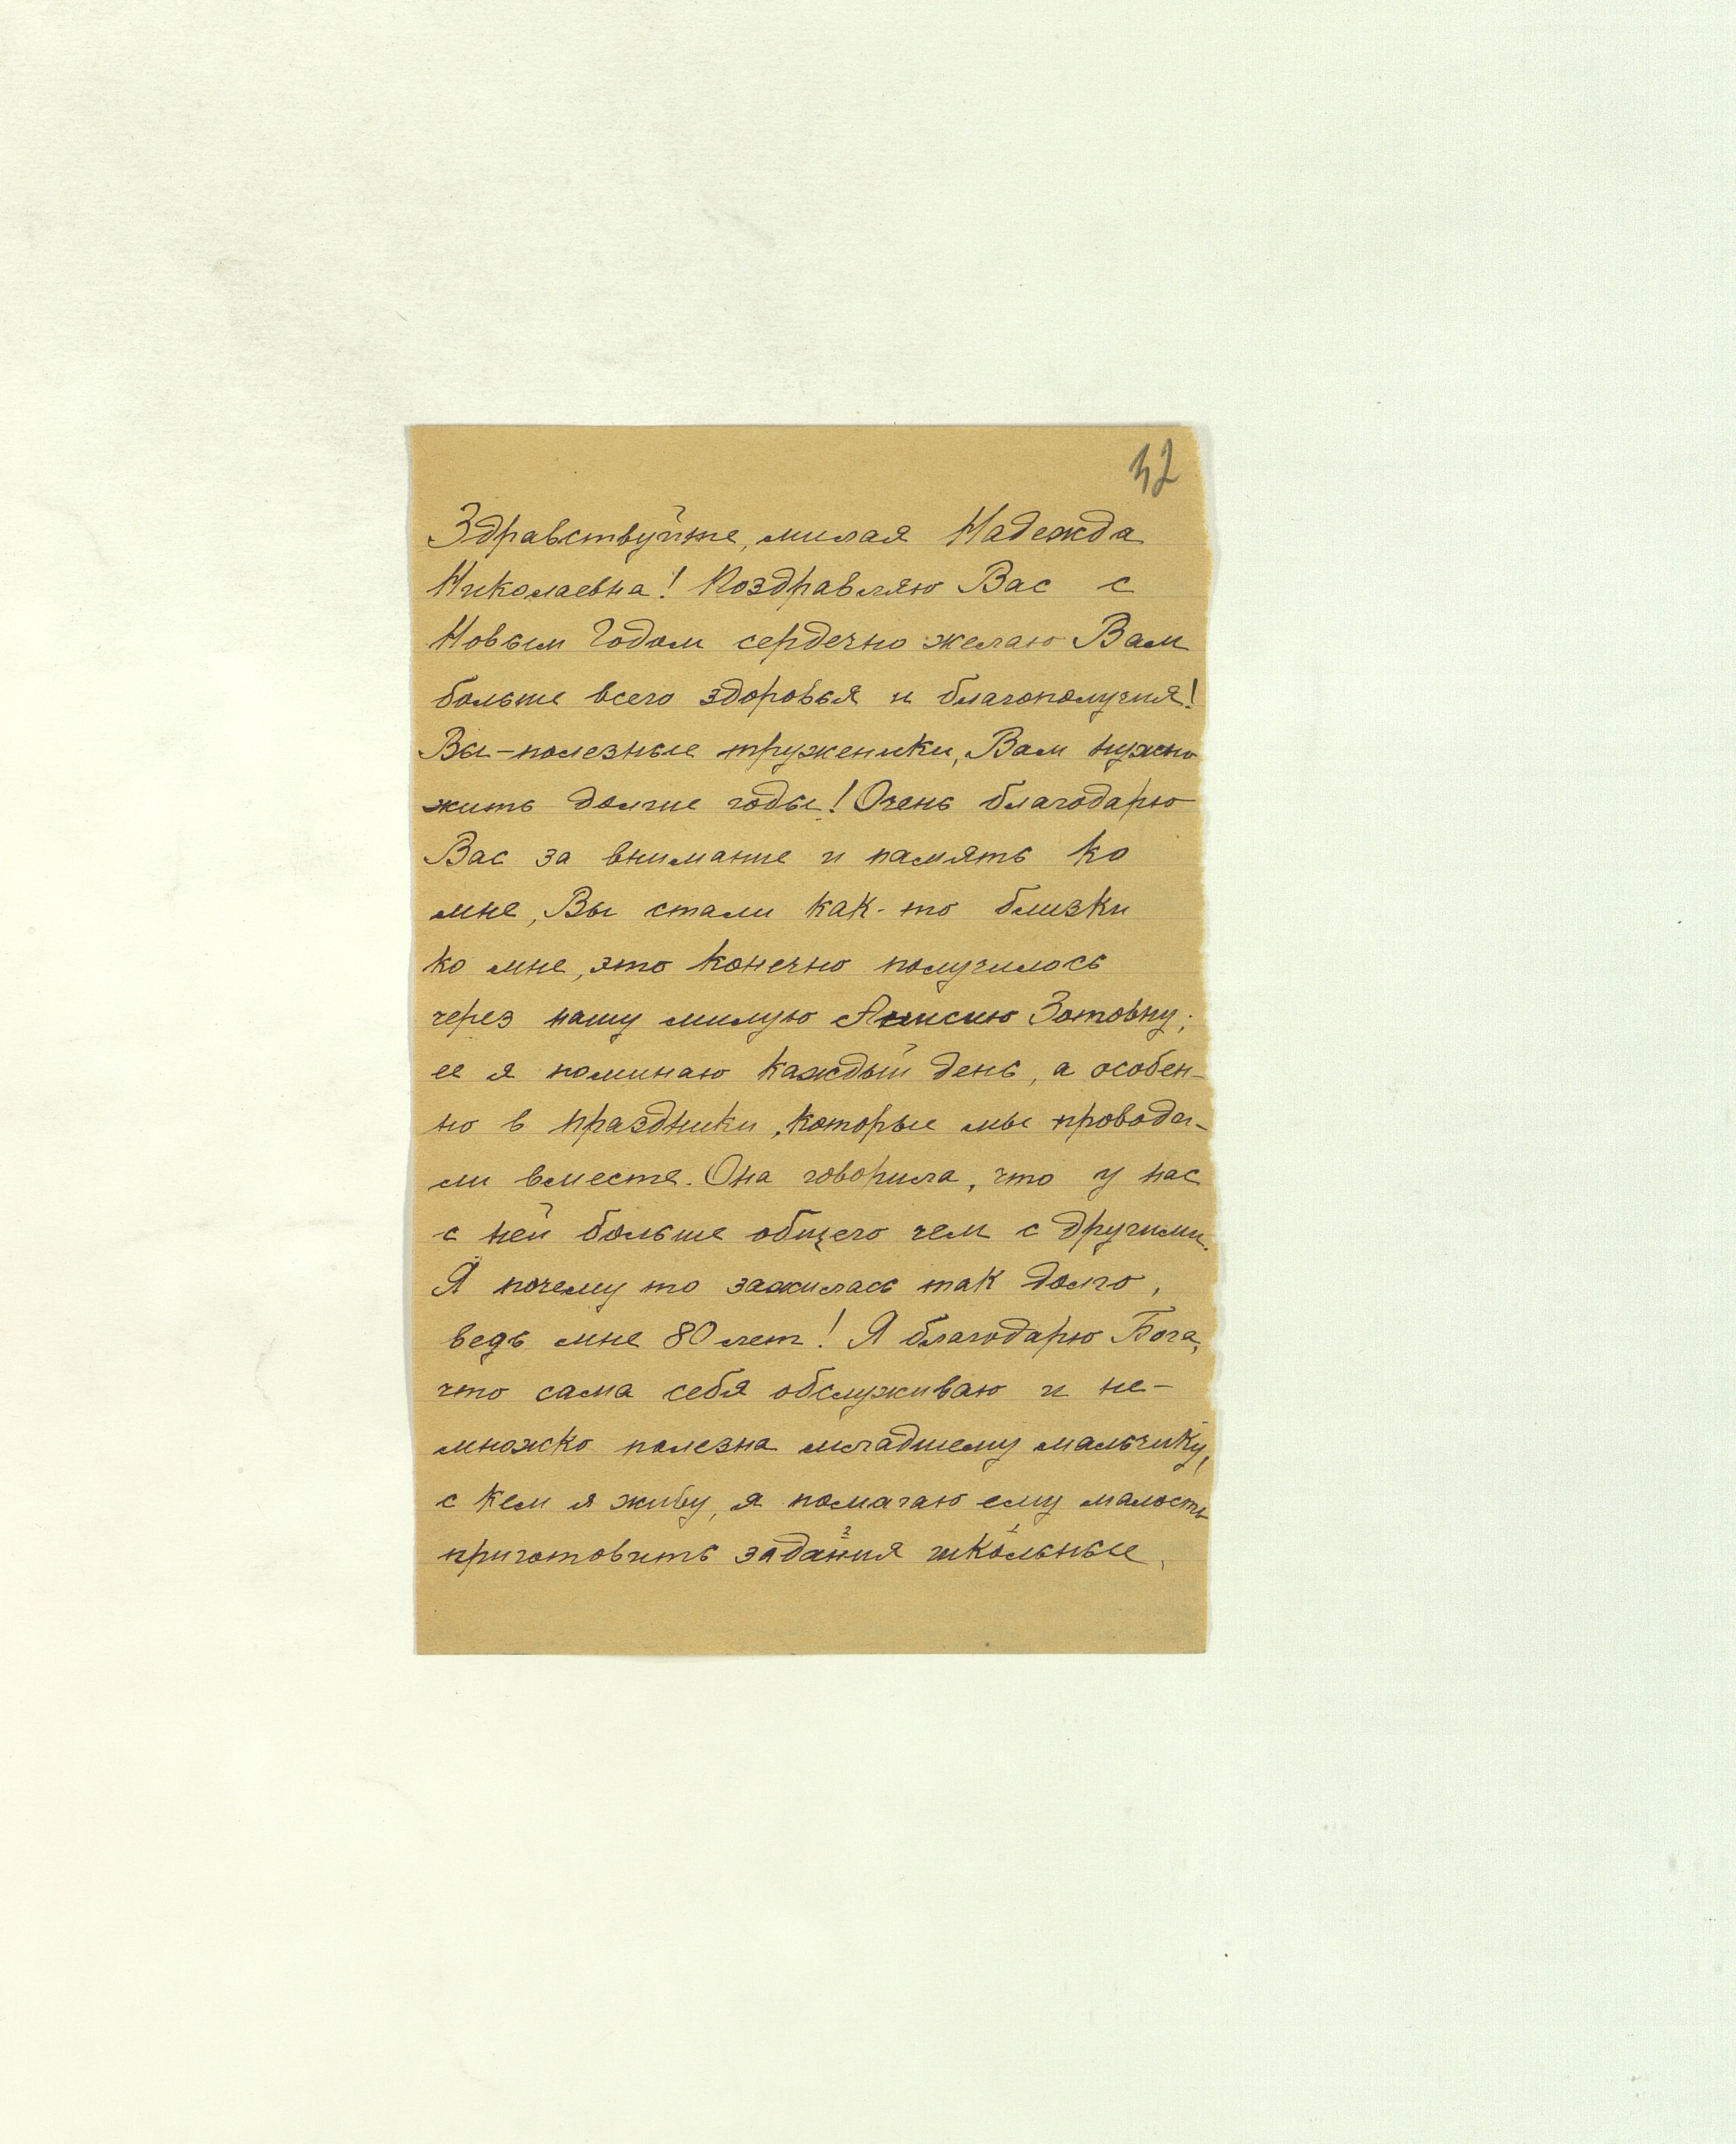 32
Здравствуйте, милая Надежда
Николаевна! Поздравляю Вас с
Новым Годом сердечно желаю Вам
больше всего здоровья и благополучия!
Вы-полезные труженики, Вам нужно
жить долгие годы! Очень благодарю
Вас за внимание и память ко
мне, Вы стали как-то близки
ко мне, это конечно получилось
через нашу милую Анисию Зотовну;
ее я поминаю каждый день, а особен-
но в праздники, которые мы проводи-
ли вместе. Она говорила, что у нас
с ней больше общего чем с другими.
Я почему то зажилась так долго,
ведь мне 80 лет! Я благодарю Бога,
что сама себя обслуживаю и не-
множко полезна младшему мальчику,
с кем я живу, я помагаю ему малость
приготовить задания школьные,